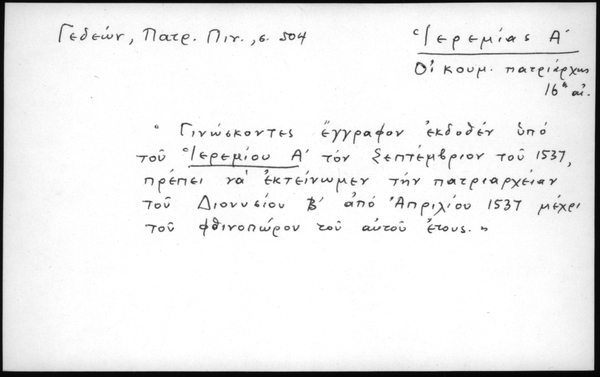 Γεδεών, Πατρ. Πιν., σ. 504
Ἱερεμίας Α'
Οἰκουμ. πατριάρχης
16ος αἰ.
"Γινώσκοντες ἔγγραφον ἐκδοθέν ὑπό
τοῦ Ἱερεμίου Α' τόν Σεπτέμβριον τοῦ 1537,
πρέπει νά ἐκτείνωμεν τήν πατριαρχείαν
τοῦ Διονυσίου Β' ἀπό Ἀπριλίου 1537 μέχρι
τοῦ φθινοπώρου τοῦ αὐτοῦ ἔτους."